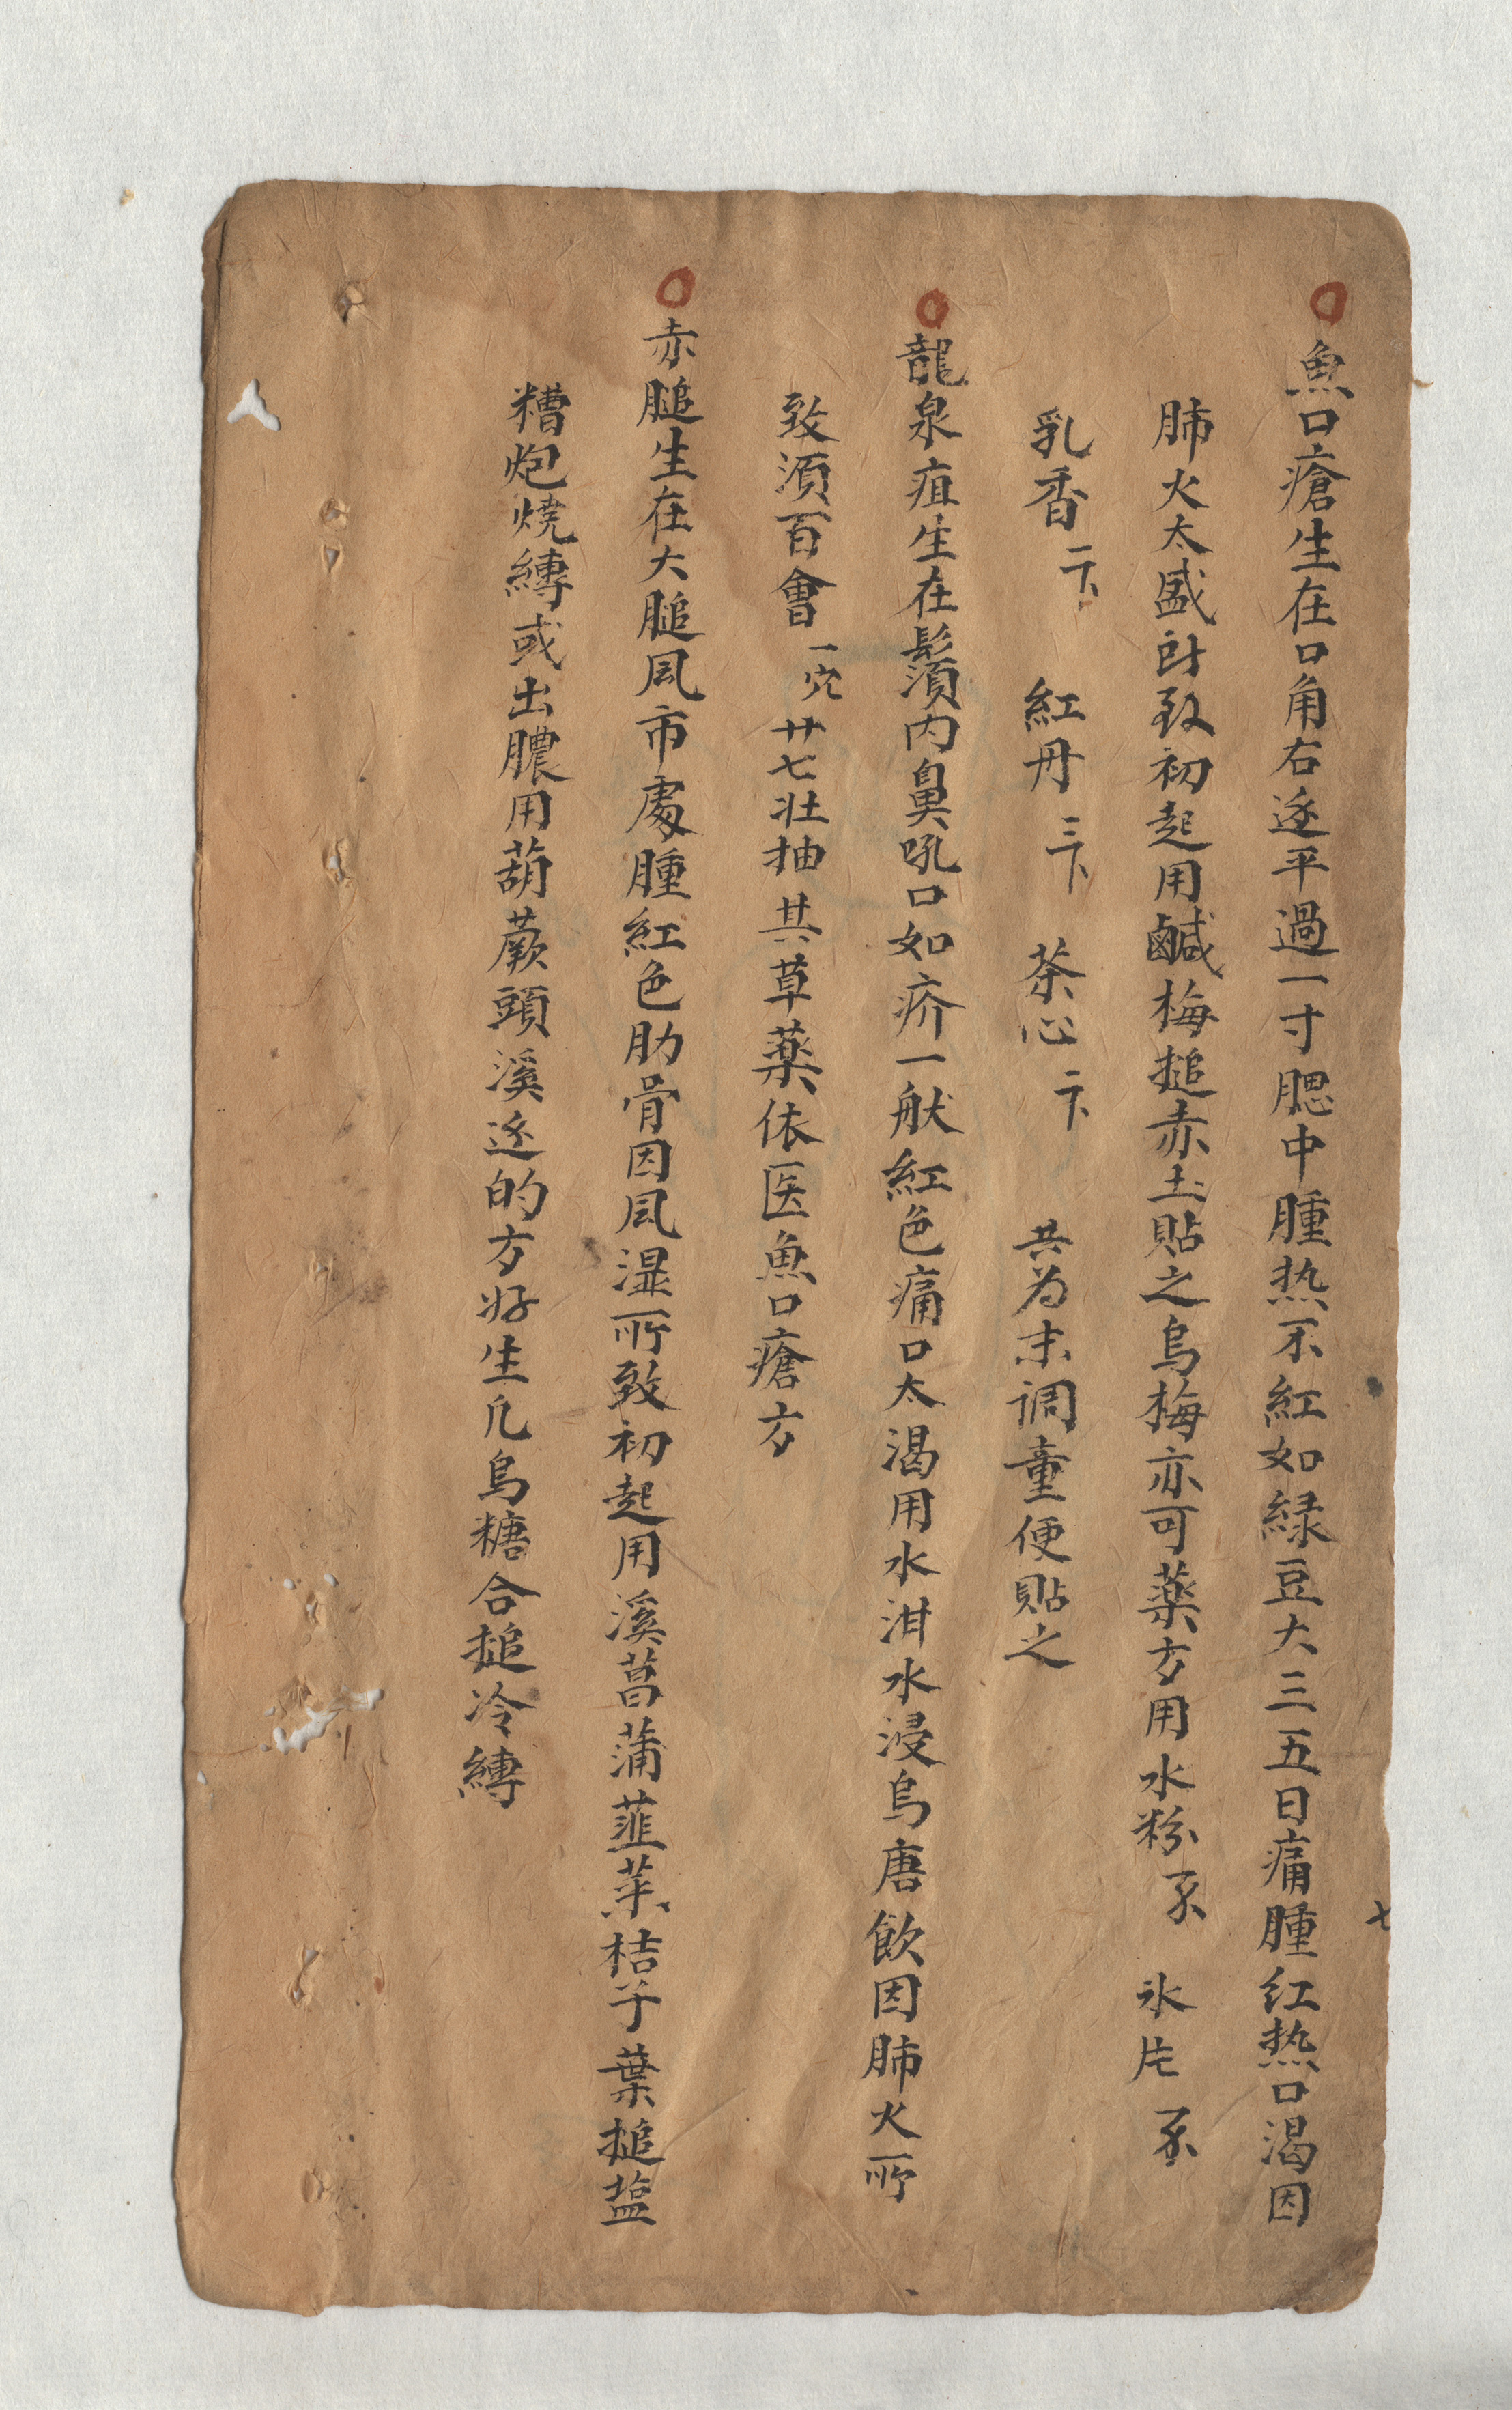 魚口瘡生在口角右边平過一寸腮中腫热不紅如緑豆大三五日痛腫红热口渴因
肺火太盛所致初起用鹹梅搥赤土貼之烏梅亦可薬方用水粉 氷片
乳香 紅丹 茶心 共为末调童便貼之
龍泉疽生在鬚内鼻吼口如疥一般紅色痛口太渴用水泔水浸烏唐飲因肺火所
致須百會一穴廿七壮抽其草薬依医魚口瘡方
赤腿生在大腿风市處腫紅色肋骨因风湿所致初起用溪菖蒲韮菜桔子葉搥盐
糟炮燒縛或出膿用葫蕨頭溪边的方好生几烏糖合搥冷縛
七